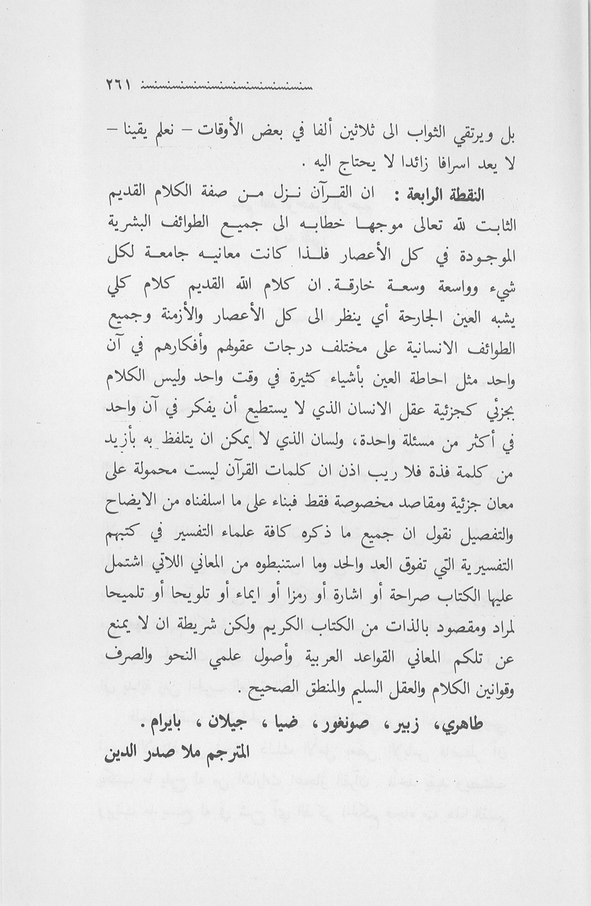 ٢٦١
بل ويرتقي الثواب الى ثلاثين ألفا في بعض الأوقات – نعلم يقينا –
لا يعد اسرافا زائدا لا يحتاج اليه .
النقطة الرابعة : ان القـرآن نـزل مـن صفة الكلام القديم
الثابت لله تعالى موجهـا خطابـه الى جميـع الطوائف البشرية
الموجـودة في كل الأعصار فلـذا كانت معانيـه جامعـة لكل
شيء وواسعة وسعـة خارقـة. ان كلام الله القديم كلام كلي
يشبه العين الجارحة أي ينظر الى كل الأعصار والأزمنة وجميع
الطوائف الانسانية على مختلف درجات عقولهم وأفكارهم في آن
واحد مثل احاطة العين بأشياء كثيرة في وقت واحد وليس الكلام
بجزئي كجزئية عقل الانسان الذي لا يستطيع أن يفكر في آن واحد
في أكثر من مسئلة واحدة، ولسان الذي لا يمكن ان يتلفظ به بأزيد
من كلمة فذة فلا ريب اذن ان كلمات القرآن ليست محمولة على
معان جزئية ومقاصد مخصوصة فقط فبناء على ما اسلفناه من الايضاح
والتفصيل نقول ان جميع ما ذكره كافة علماء التفسير في كتبهم
التفسيرية التي تفوق العد والحد وما استنبطوه من المعاني اللاتي اشتمل
عليها الكتاب صراحة أو اشارة أو رمزا أو ايماء أو تلويحا أو تلميحا
لمراد ومقصود بالذات من الكتاب الكريم ولكن شريطة ان لا يمنع
عن تلكم المعاني القواعد العربية وأصول علمي النحو والصرف
وقوانين الكلام والعقل السليم والمنطق الصحيح .
طاهري، زبير ، صونغور ، ضيا ، جيلان ، بايرام .
المترجم ملا صدر الدين